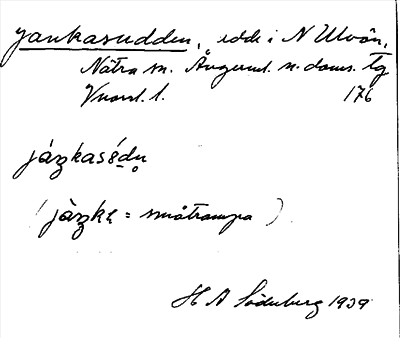 Jankasudden, udde i N Ulvön,
Nätra sn. Ångerml. n. doms. tg
Vnorrl. l. 176
jàŋkasédn̥
(jàŋkɐ = småtrampa)
H A Söderberg 1939